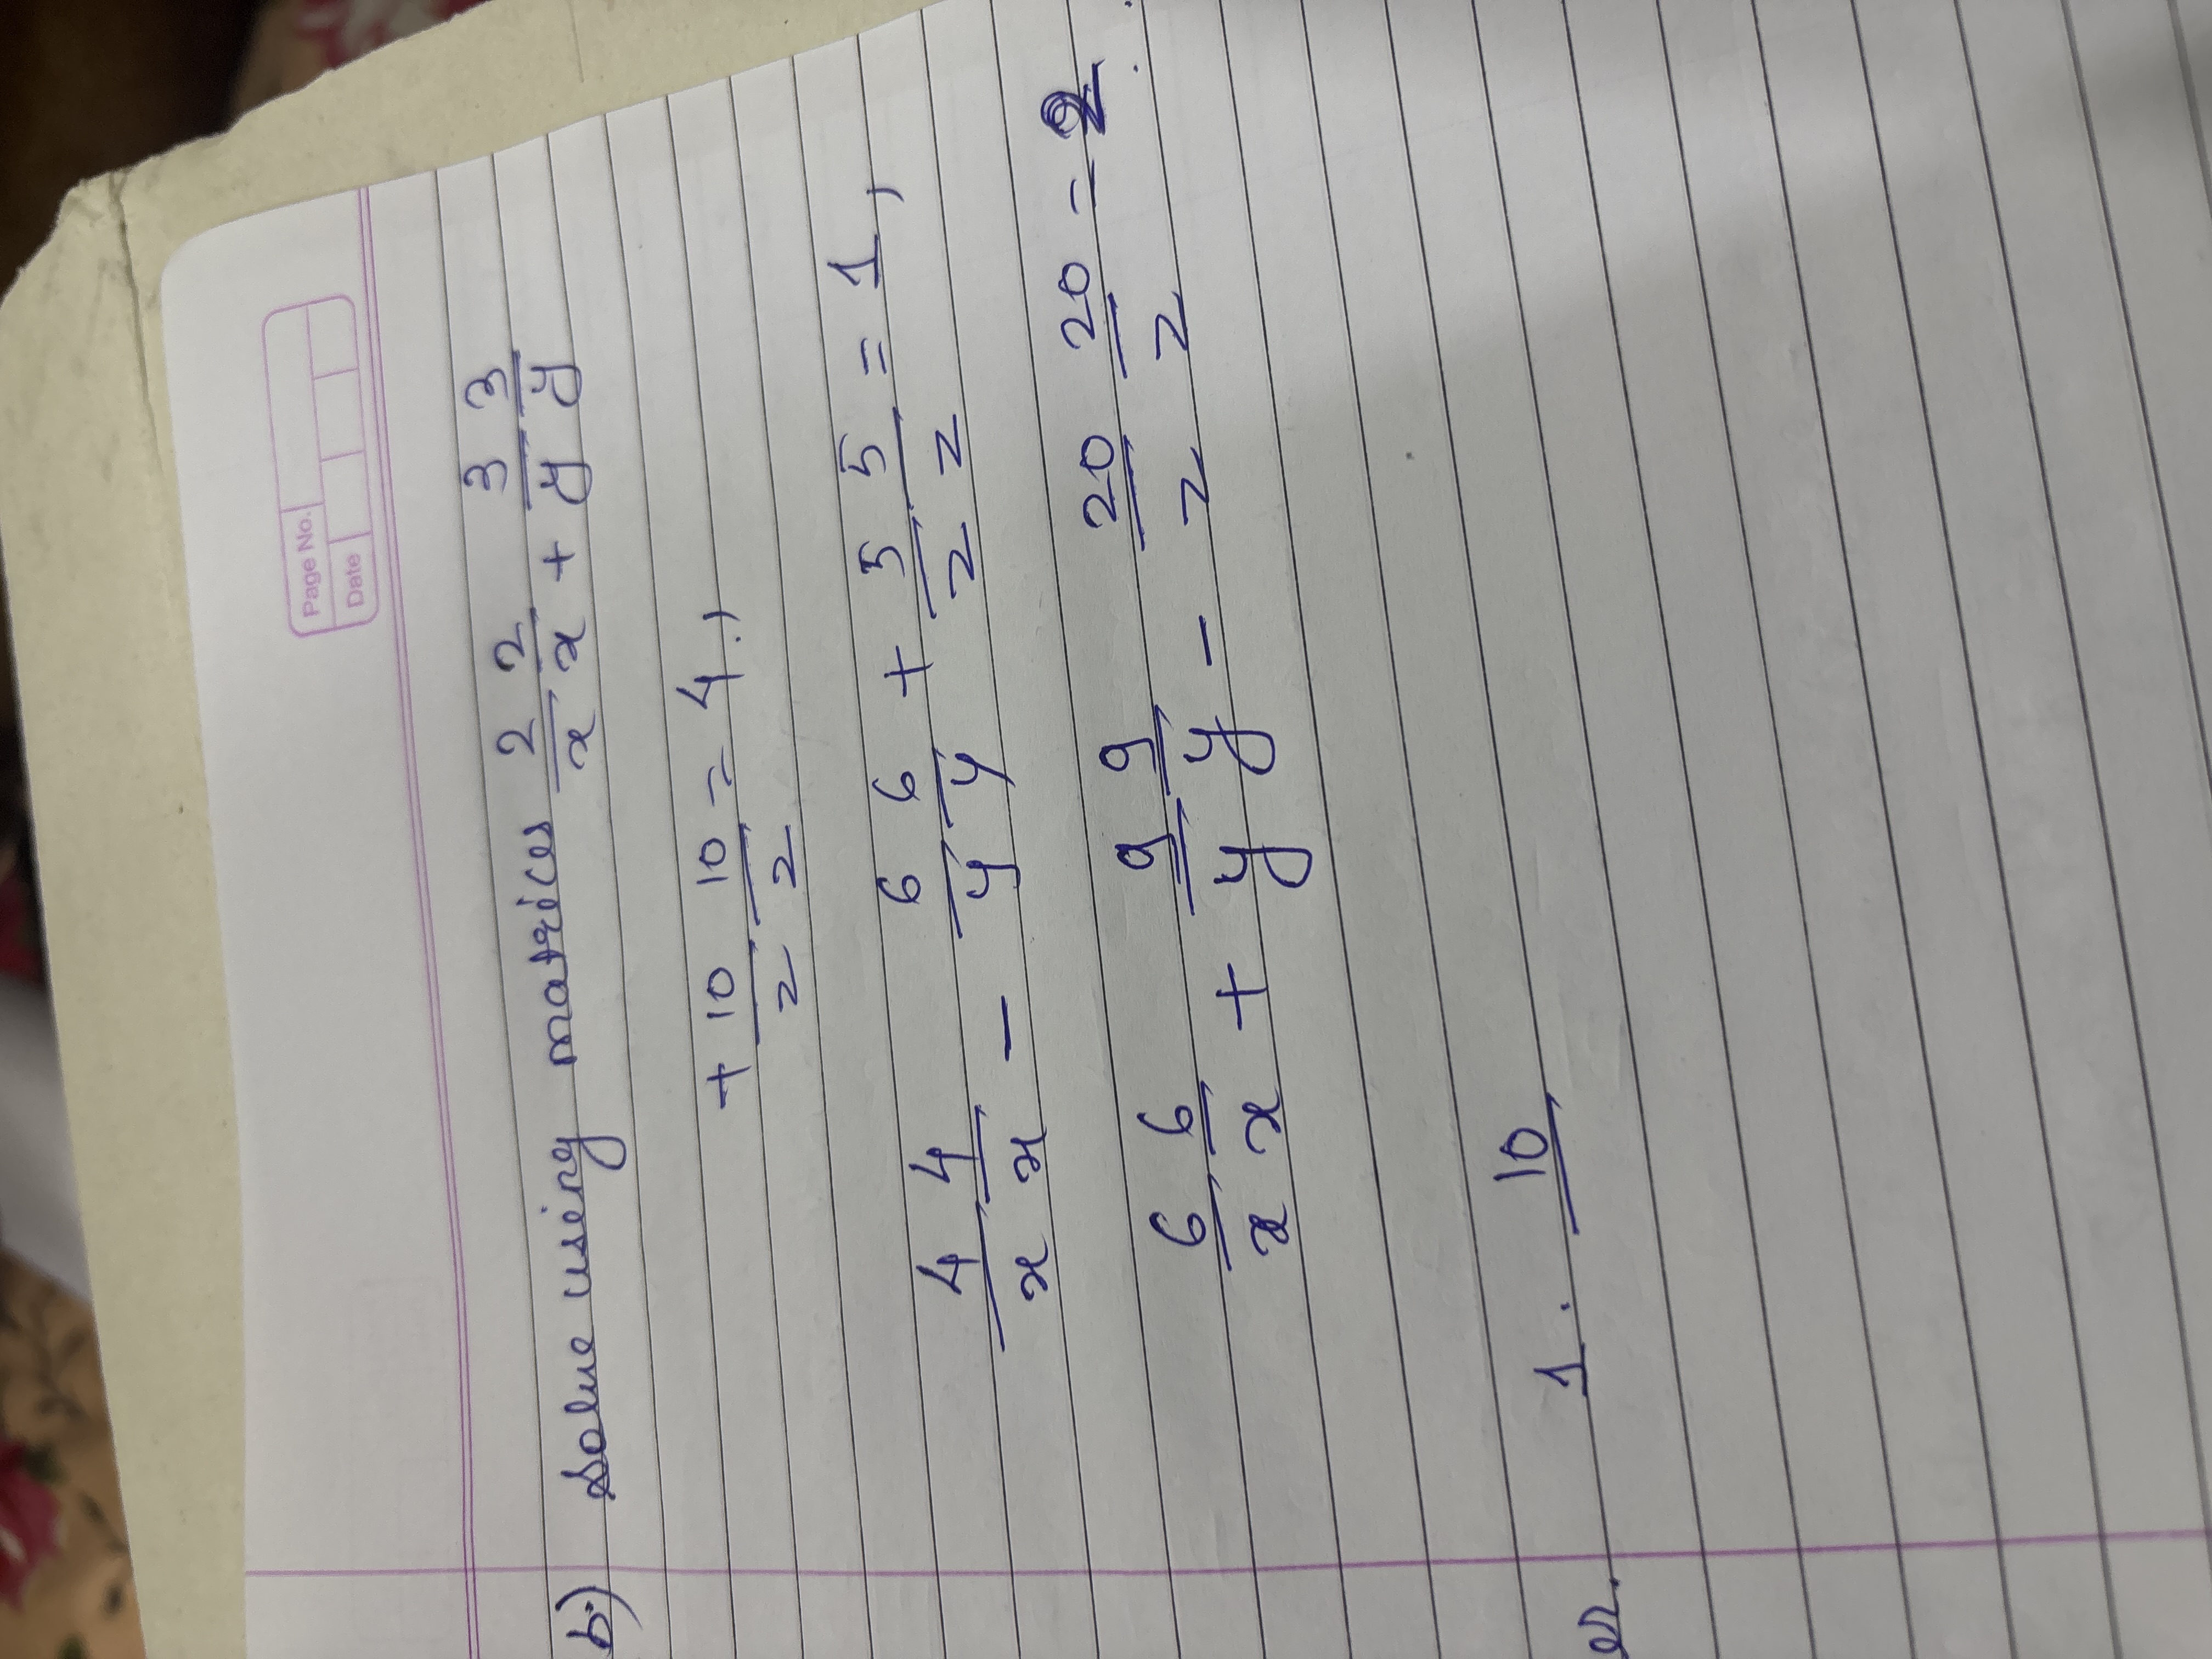 Page No.
Date
b.) Solve using matrices 2/x 2/x + 3/y 3/y
+ 10/z 10/z = 4.,
4/x 4/x - 6/y 6/y + 5/z 5/z = 1,
6/x 6/x + 9/y 9/y - 20/z 20/z = 2.
1. 10